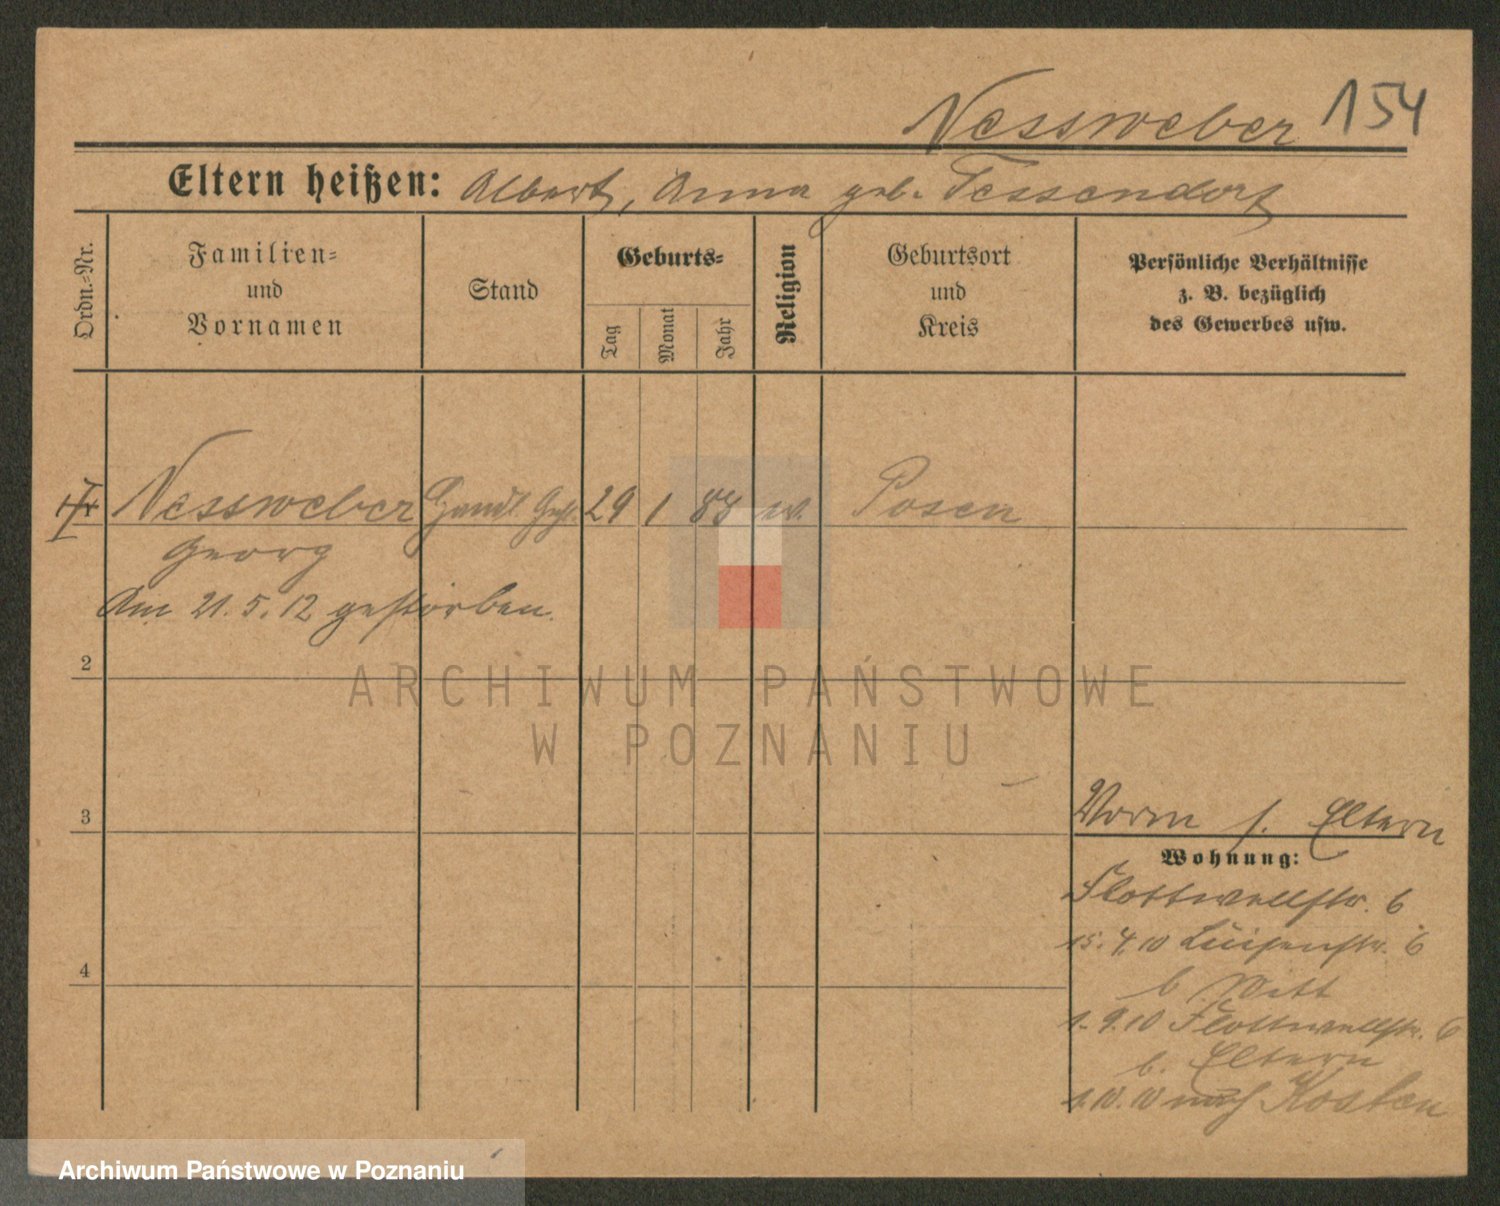 Nessweber 154
Eltern heißen: Albert, Anna geb. Tessendorf
Ordn.-Nr.
Familien-
und
Vornamen
Stand
Geburts-
Tag
Monat
Jahr
Religion
Geburtsort
und
Kreis
Persönliche Verhältnisse
z. B. bezüglich
des Gewerbes usw.
Nessweber Handl. Geh. 29 1 83 ev. Posen
Georg
Am 21.5.12 gestorben.
2
3
4
Vorm s. Eltern
Wohnung:
Flottwellstr. 6
15.4.10 Luisenstr. 6
b. Witt
1.9.10 Flottwellstr. 6
b. Eltern
1.10.10 nach Kosten
ARCHIWUM PAŃSTWOWE
W POZNANIU
Archiwum Państwowe w Poznaniu